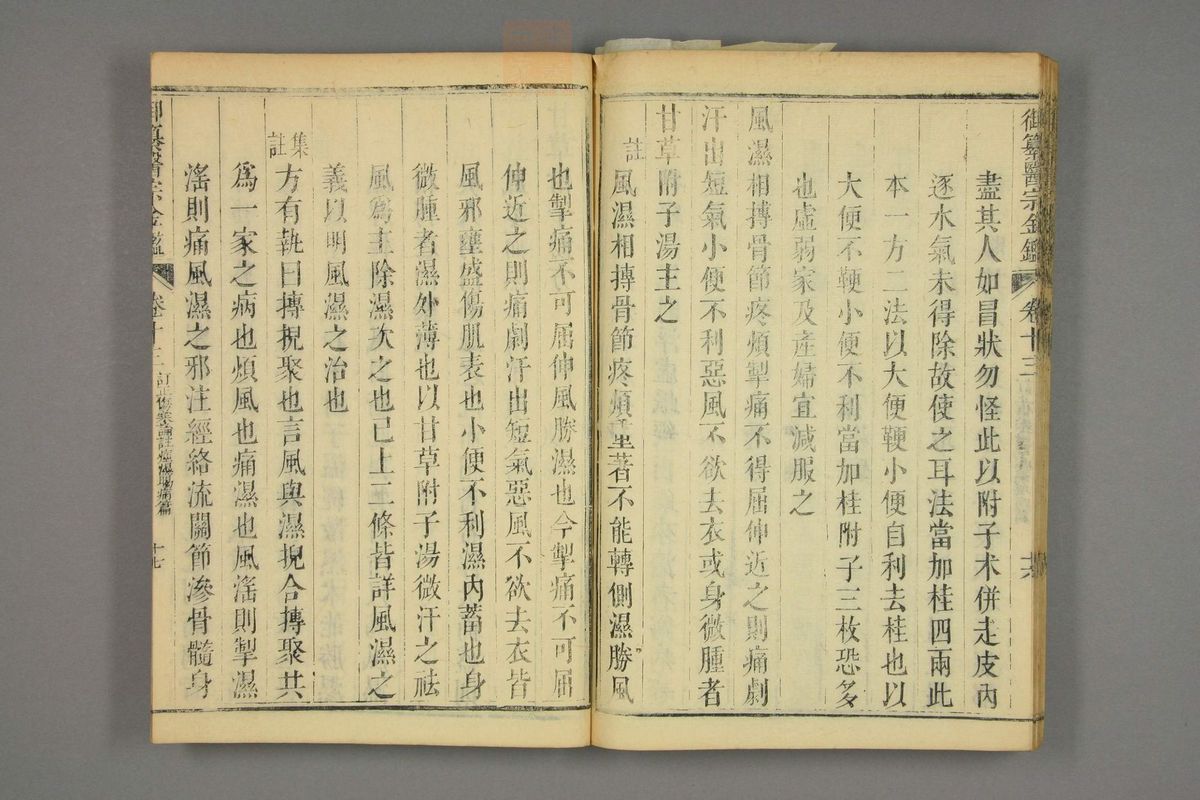 御纂醫宗金鑑 卷十三 十六
盡其人如冒狀勿怪此以附子术併走皮內
逐水氣未得除故使之耳法當加桂四兩此
本一方二法以大便鞕小便自利去桂也以
大便不鞕小便不利當加桂附子三枚恐多
也虛弱家及產婦宜減服之
風濕相摶骨節疼煩掣痛不得屈伸近之則痛劇
汗出短氣小便不利惡風不欲去衣或身微腫者
甘草附子湯主之
註風濕相摶骨節疼煩重著不能轉側濕勝風
也掣痛不可屈伸風勝濕也今掣痛不可屈
伸近之則痛劇汗出短氣惡風不欲去衣皆
風邪壅盛傷肌表也小便不利濕內蓄也身
微腫者濕外薄也以甘草附子湯微汗之祛
風為主除濕次之也已上二條皆詳風濕之
義以明風濕之治也
集註方有執曰摶捖聚也言風與濕捖合摶聚共
為一家之病也煩風也痛濕也風淫則掣濕
淫則痛風濕之邪注經絡流關節滲骨髓身
御纂醫宗金鑑 卷十三 訂正傷寒論註痙濕暍病篇 十七